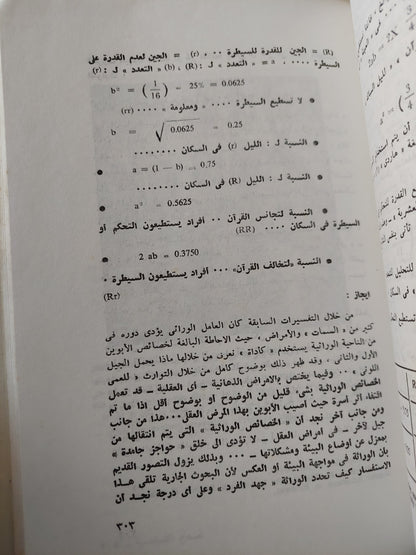 (R) = الجين للقدرة للسيطرة ٠٠٠ (r) = الجين لعدم القدرة على
السيطرة ٠٠٠٠٠ a = « التعدد » ل : (R) ، (b) « التعدد » ل : (r)
b² = (1/16) = 25% = 0.0625
• لا نستطيع السيطرة ٠٠٠٠ « ومعلومة » ٠٠٠٠ (rr)
b = √0.0625 = 0.25
• النسبة ل : الليل (r) فى السكان ٠٠٠٠٠٠٠٠
a = (1 — b) = 0.75
• النسبة ل : الليل (R) فى السكان ٠٠٠٠
• a² = 0.5625
• النسبة لتجانس القرآن ٠٠٠٠ أفراد يستطيعون التحكم أو
السيطرة فى السكان ٠٠٠٠ (RR)
• 2 ab = 0.3750
• النسبة «لتخالف القرآن» ٠٠٠٠ أفراد يستطيعون السيطرة ٠
(Rr)
ايجاز :
من خلال التفسيرات السابقة كان العامل الوراثى يؤدى دوره فى
كثير من « السمات ، والأمراض ، حيث الاحاطة البالغة لخصائص الأبوين
من الناحية الوراثية يستخدم « كأداة ، نعرف من خلالها ماذا يحمل الجيل
الأول والثانى ، وقد ظهر ذلك بوضوح كامل من خلال التوارث « للعمى
اللونى » ٠٠٠ وفيما يختص بالامراض الذهانية ـ أى العقلية ـ قد تعمل
الخصائص الوراثية بشىء قليل من الوضوح أو بوضوح أقل اذا ما تم
التقاء أثر أسرة حيث أصيب الأبوين بهذا المرض العقل ٠٠٠ هذا من جانب
ومن جانب آخر نجد أن « الخصائص الوراثية » التى يتم انتقالها من
جيل لآخر ـ فى أمراض العقل ـ لا تؤدى الى خلق « حواجز جامدة »
بمعزل عن أوضاع البيئة ومشكلاتها ـ ٠٠٠ وبذلك يزول التصور القديم
بأن الوراثة فى مواجهة البيئة أو العكس لأن البحوث الجارية تلقى هذا
الاستفسار كيف تحدد الوراثة « جهد الفرد » وعلى أى درجة نجد أن
٣٠٣
2ab = 2X